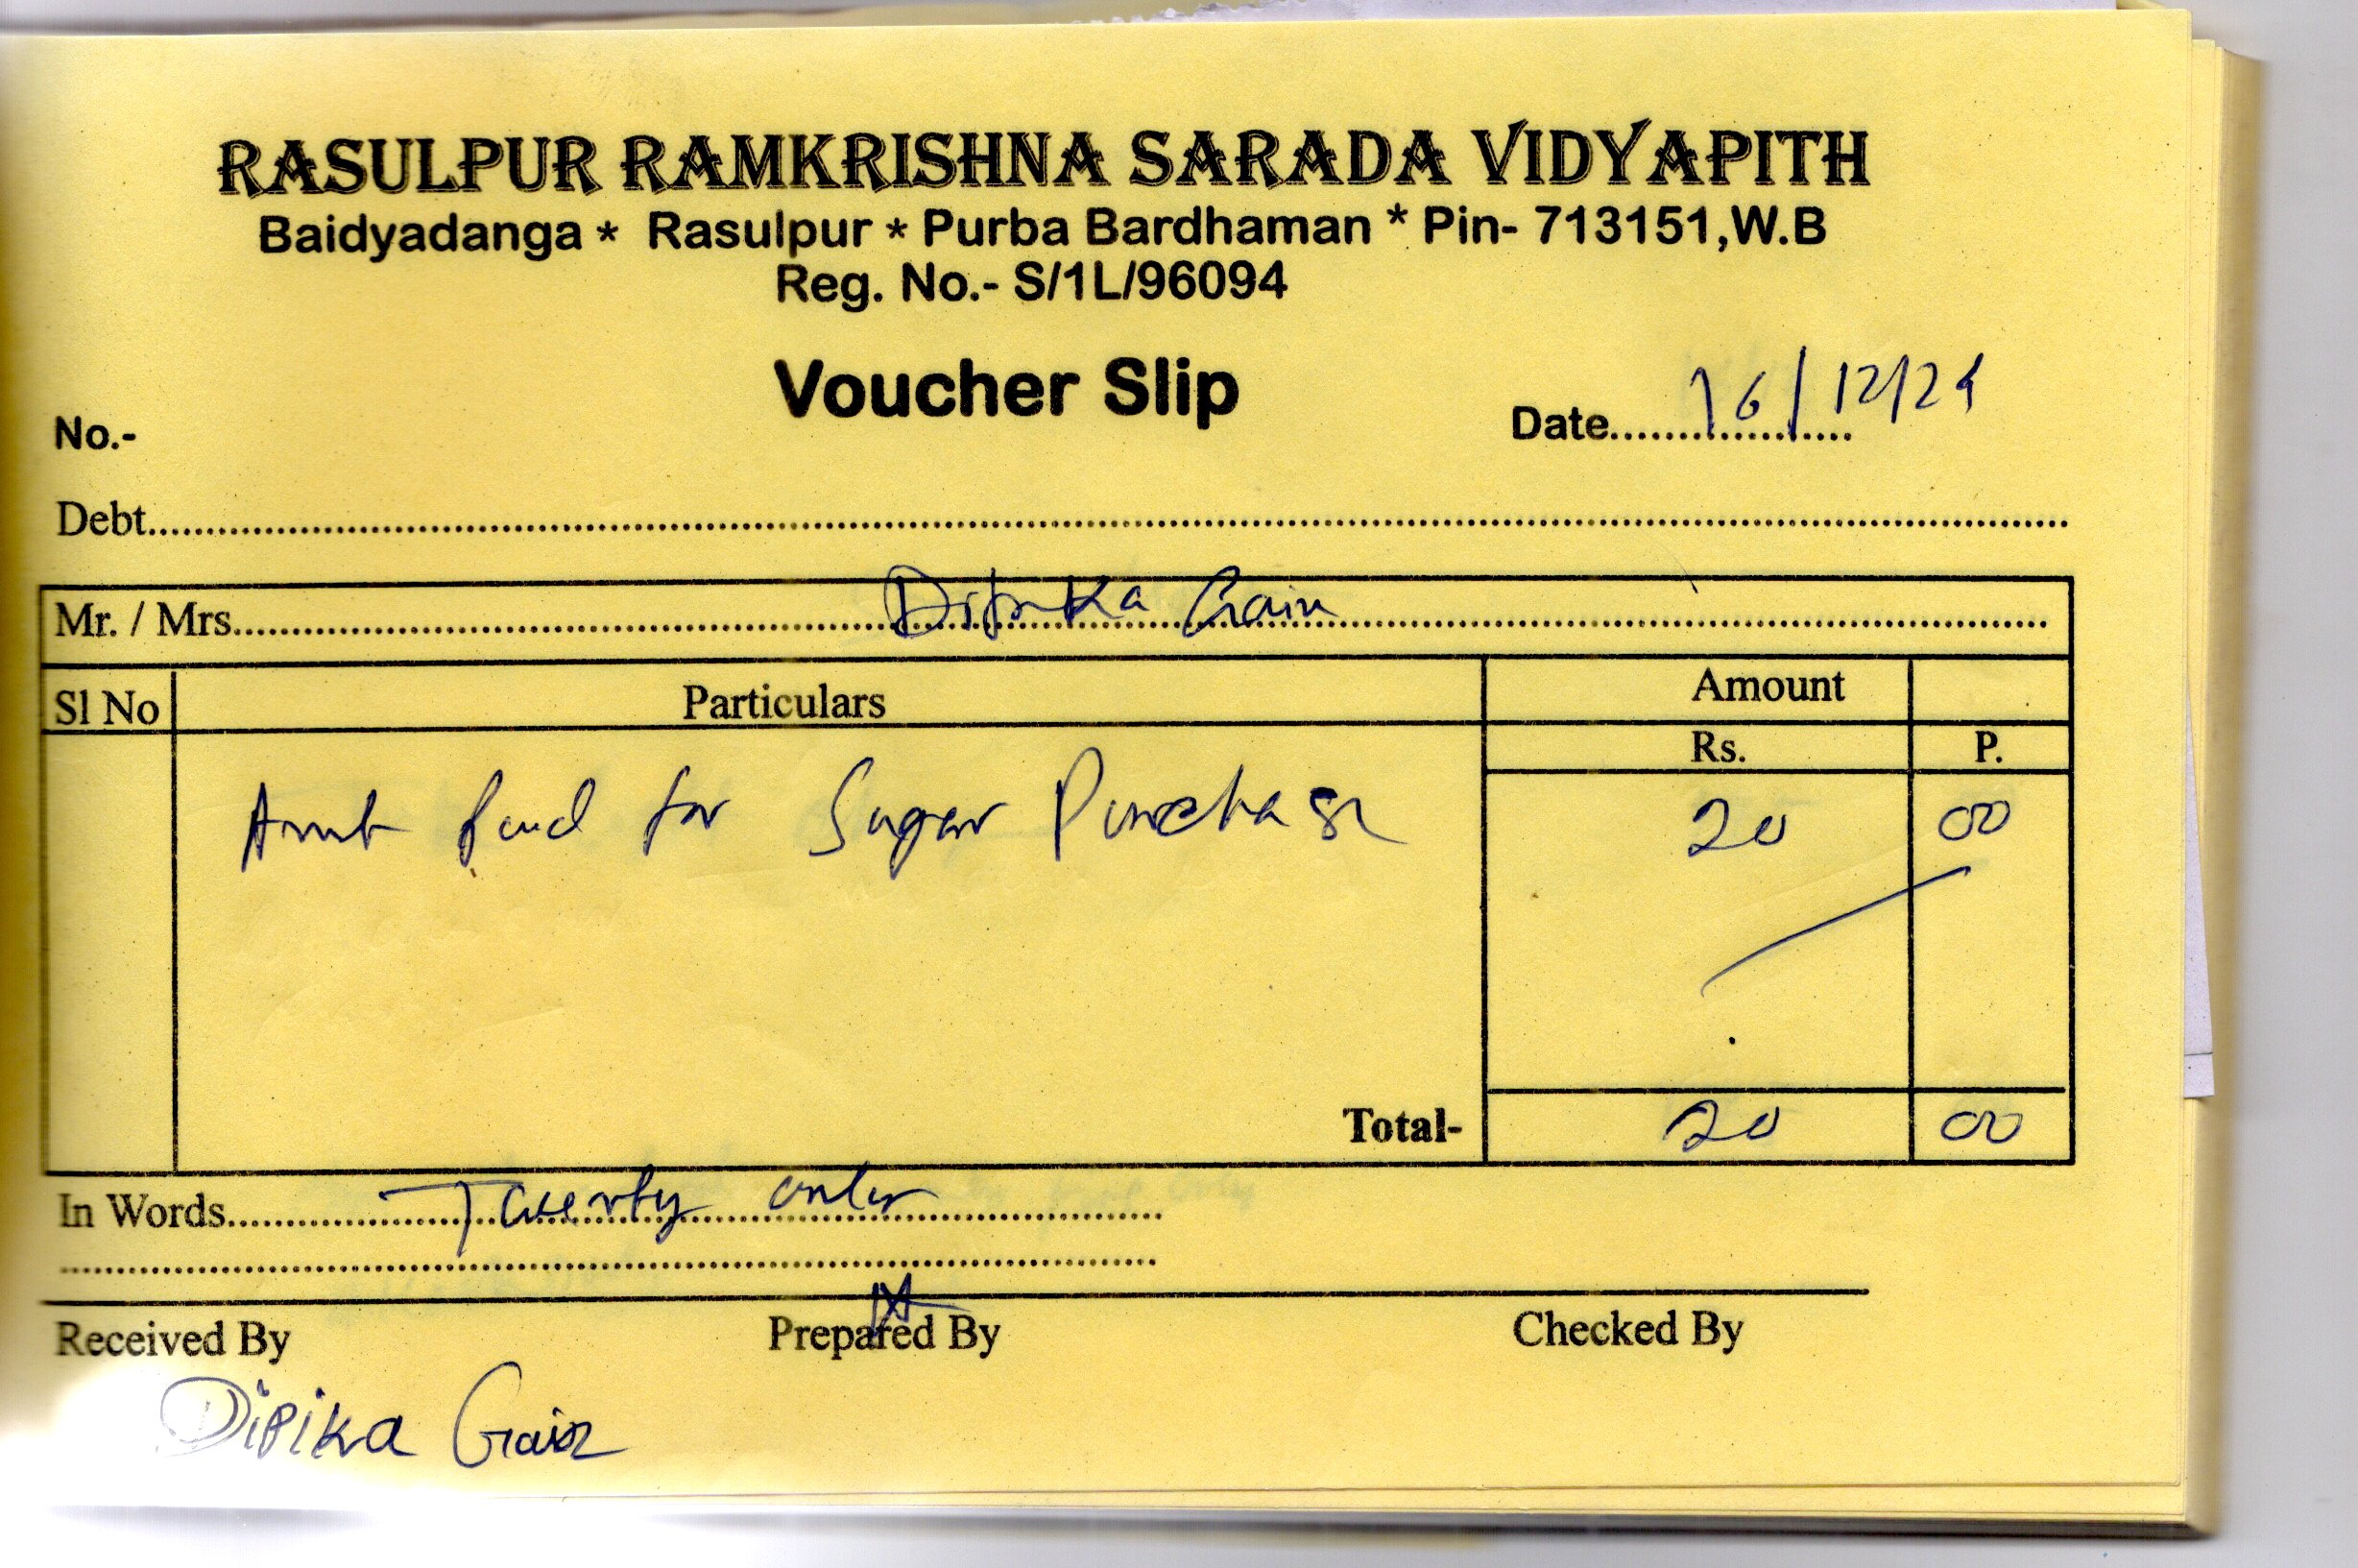 RASULPUR RAMKRISHNA SARADA VIDYAPITH
Baidyadanga * Rasulpur * Purba Bardhaman * Pin- 713151,W.B
Reg. No.- S/1L/96094
Voucher Slip
No.-
Date.................... 16/12/24
Debt....................
Mr. / Mrs.................... Dipika Gain
Sl No Particulars Amount
Rs. P.
Amt Paid for Sugar Purchase 20 00
Total- 20 00
In Words.................... Twenty only
Received By Prepared By Checked By
Dipika Gain